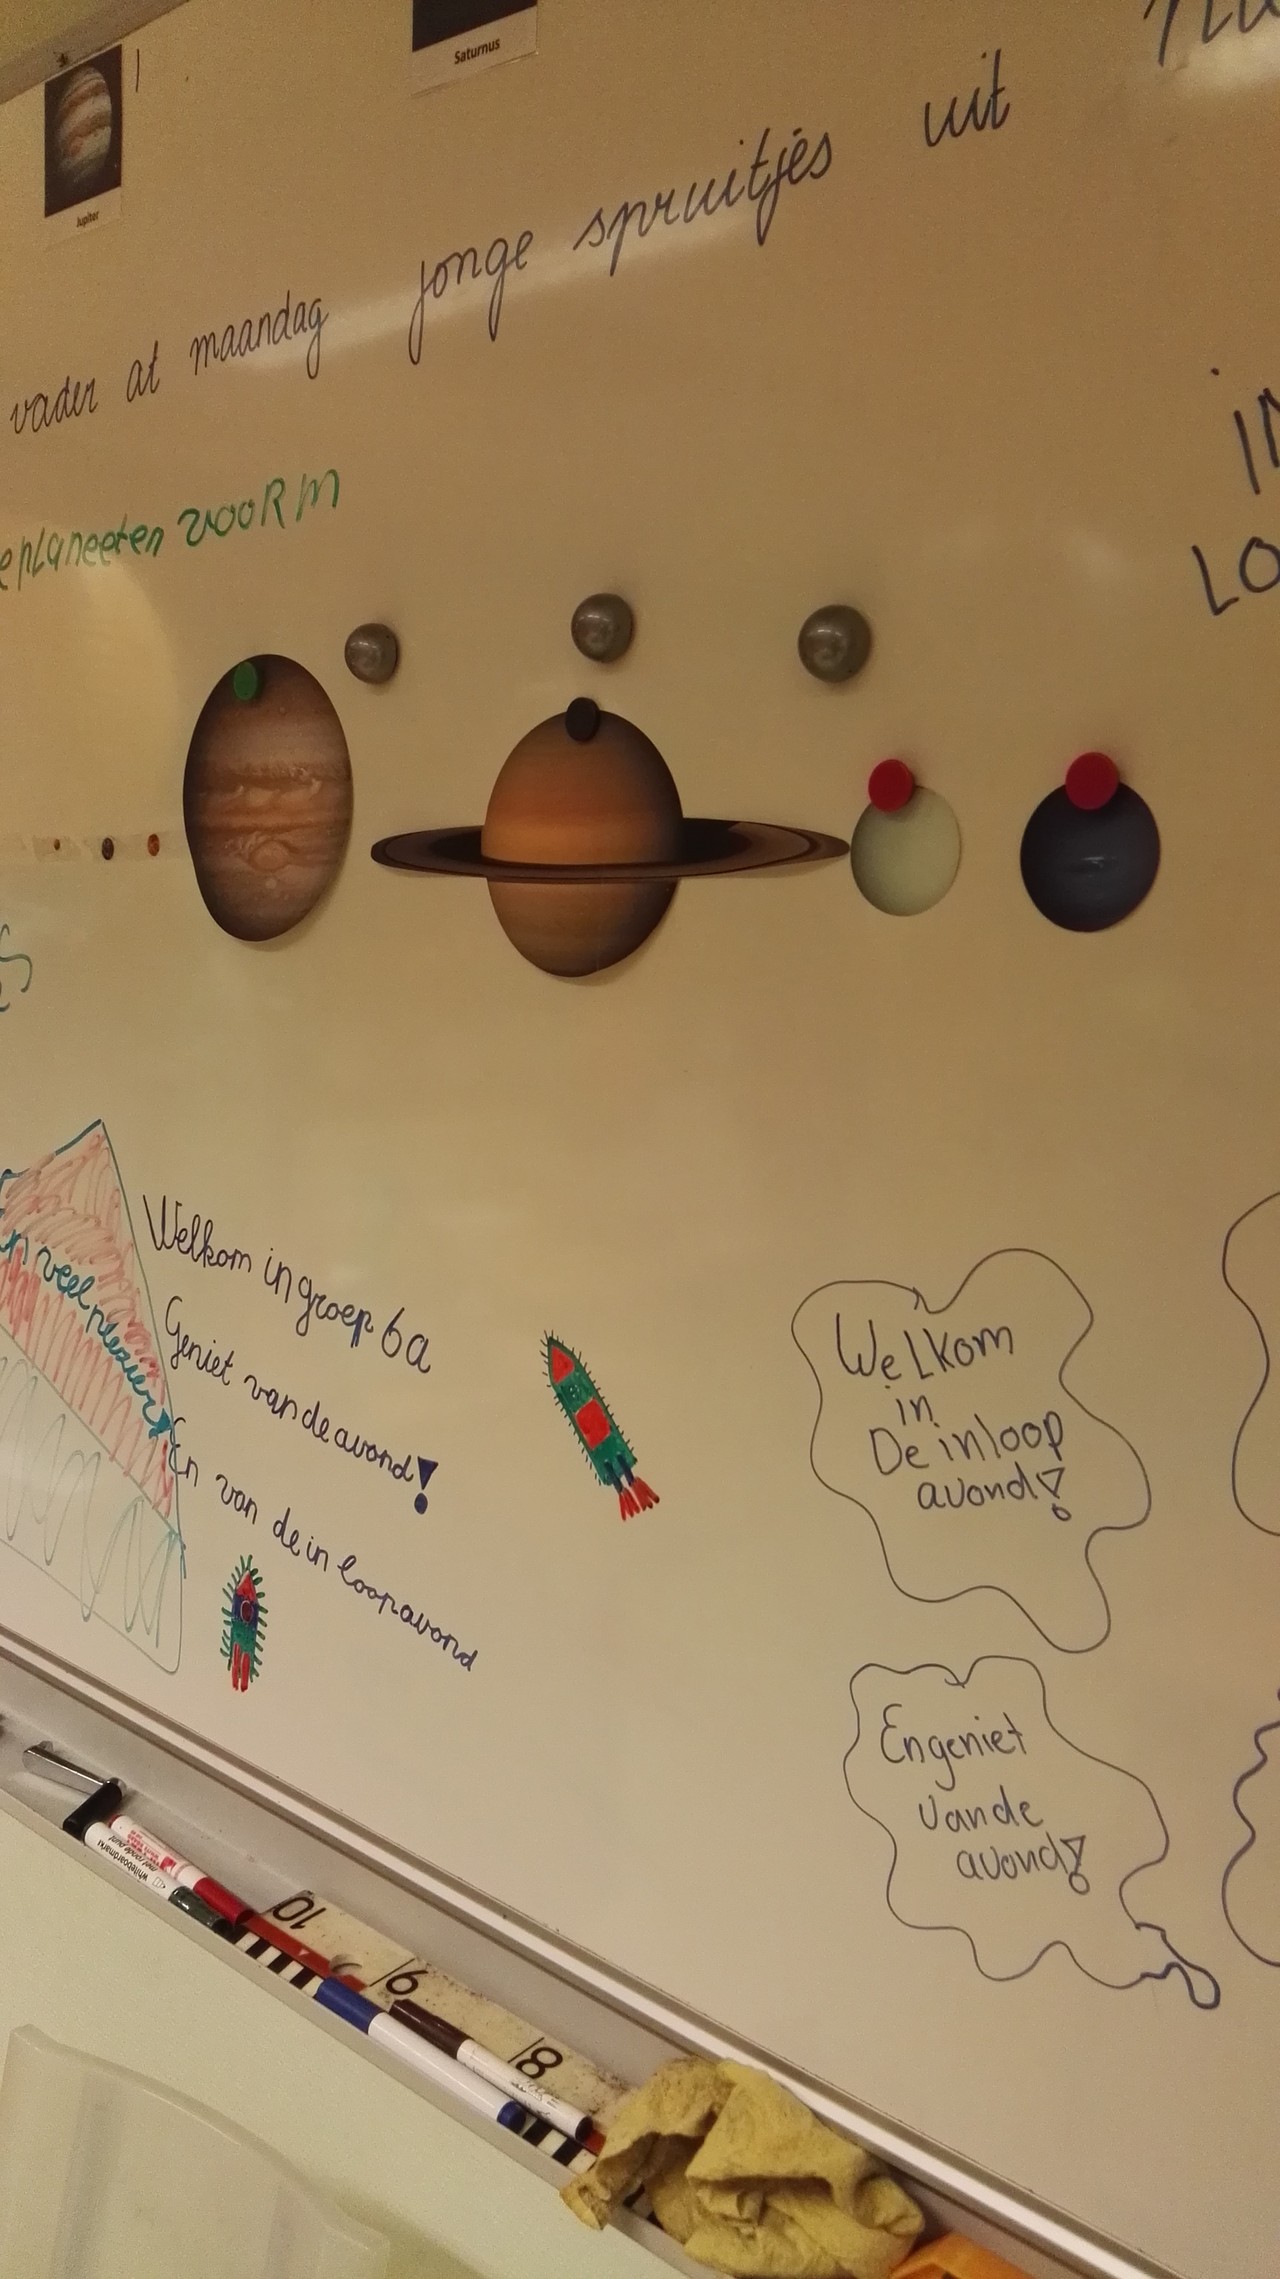 Saturnus
Jupiter
vader at maandag jonge spruitjes uit
planeeten vooRm
Welkom in groep 6a
veel plezier
Geniet van de avond!
En van de in loopavond
Welkom
in
De inloop
avond!
En geniet
van de
avond!
whiteboardmarker
met ronde punt
10
9
8